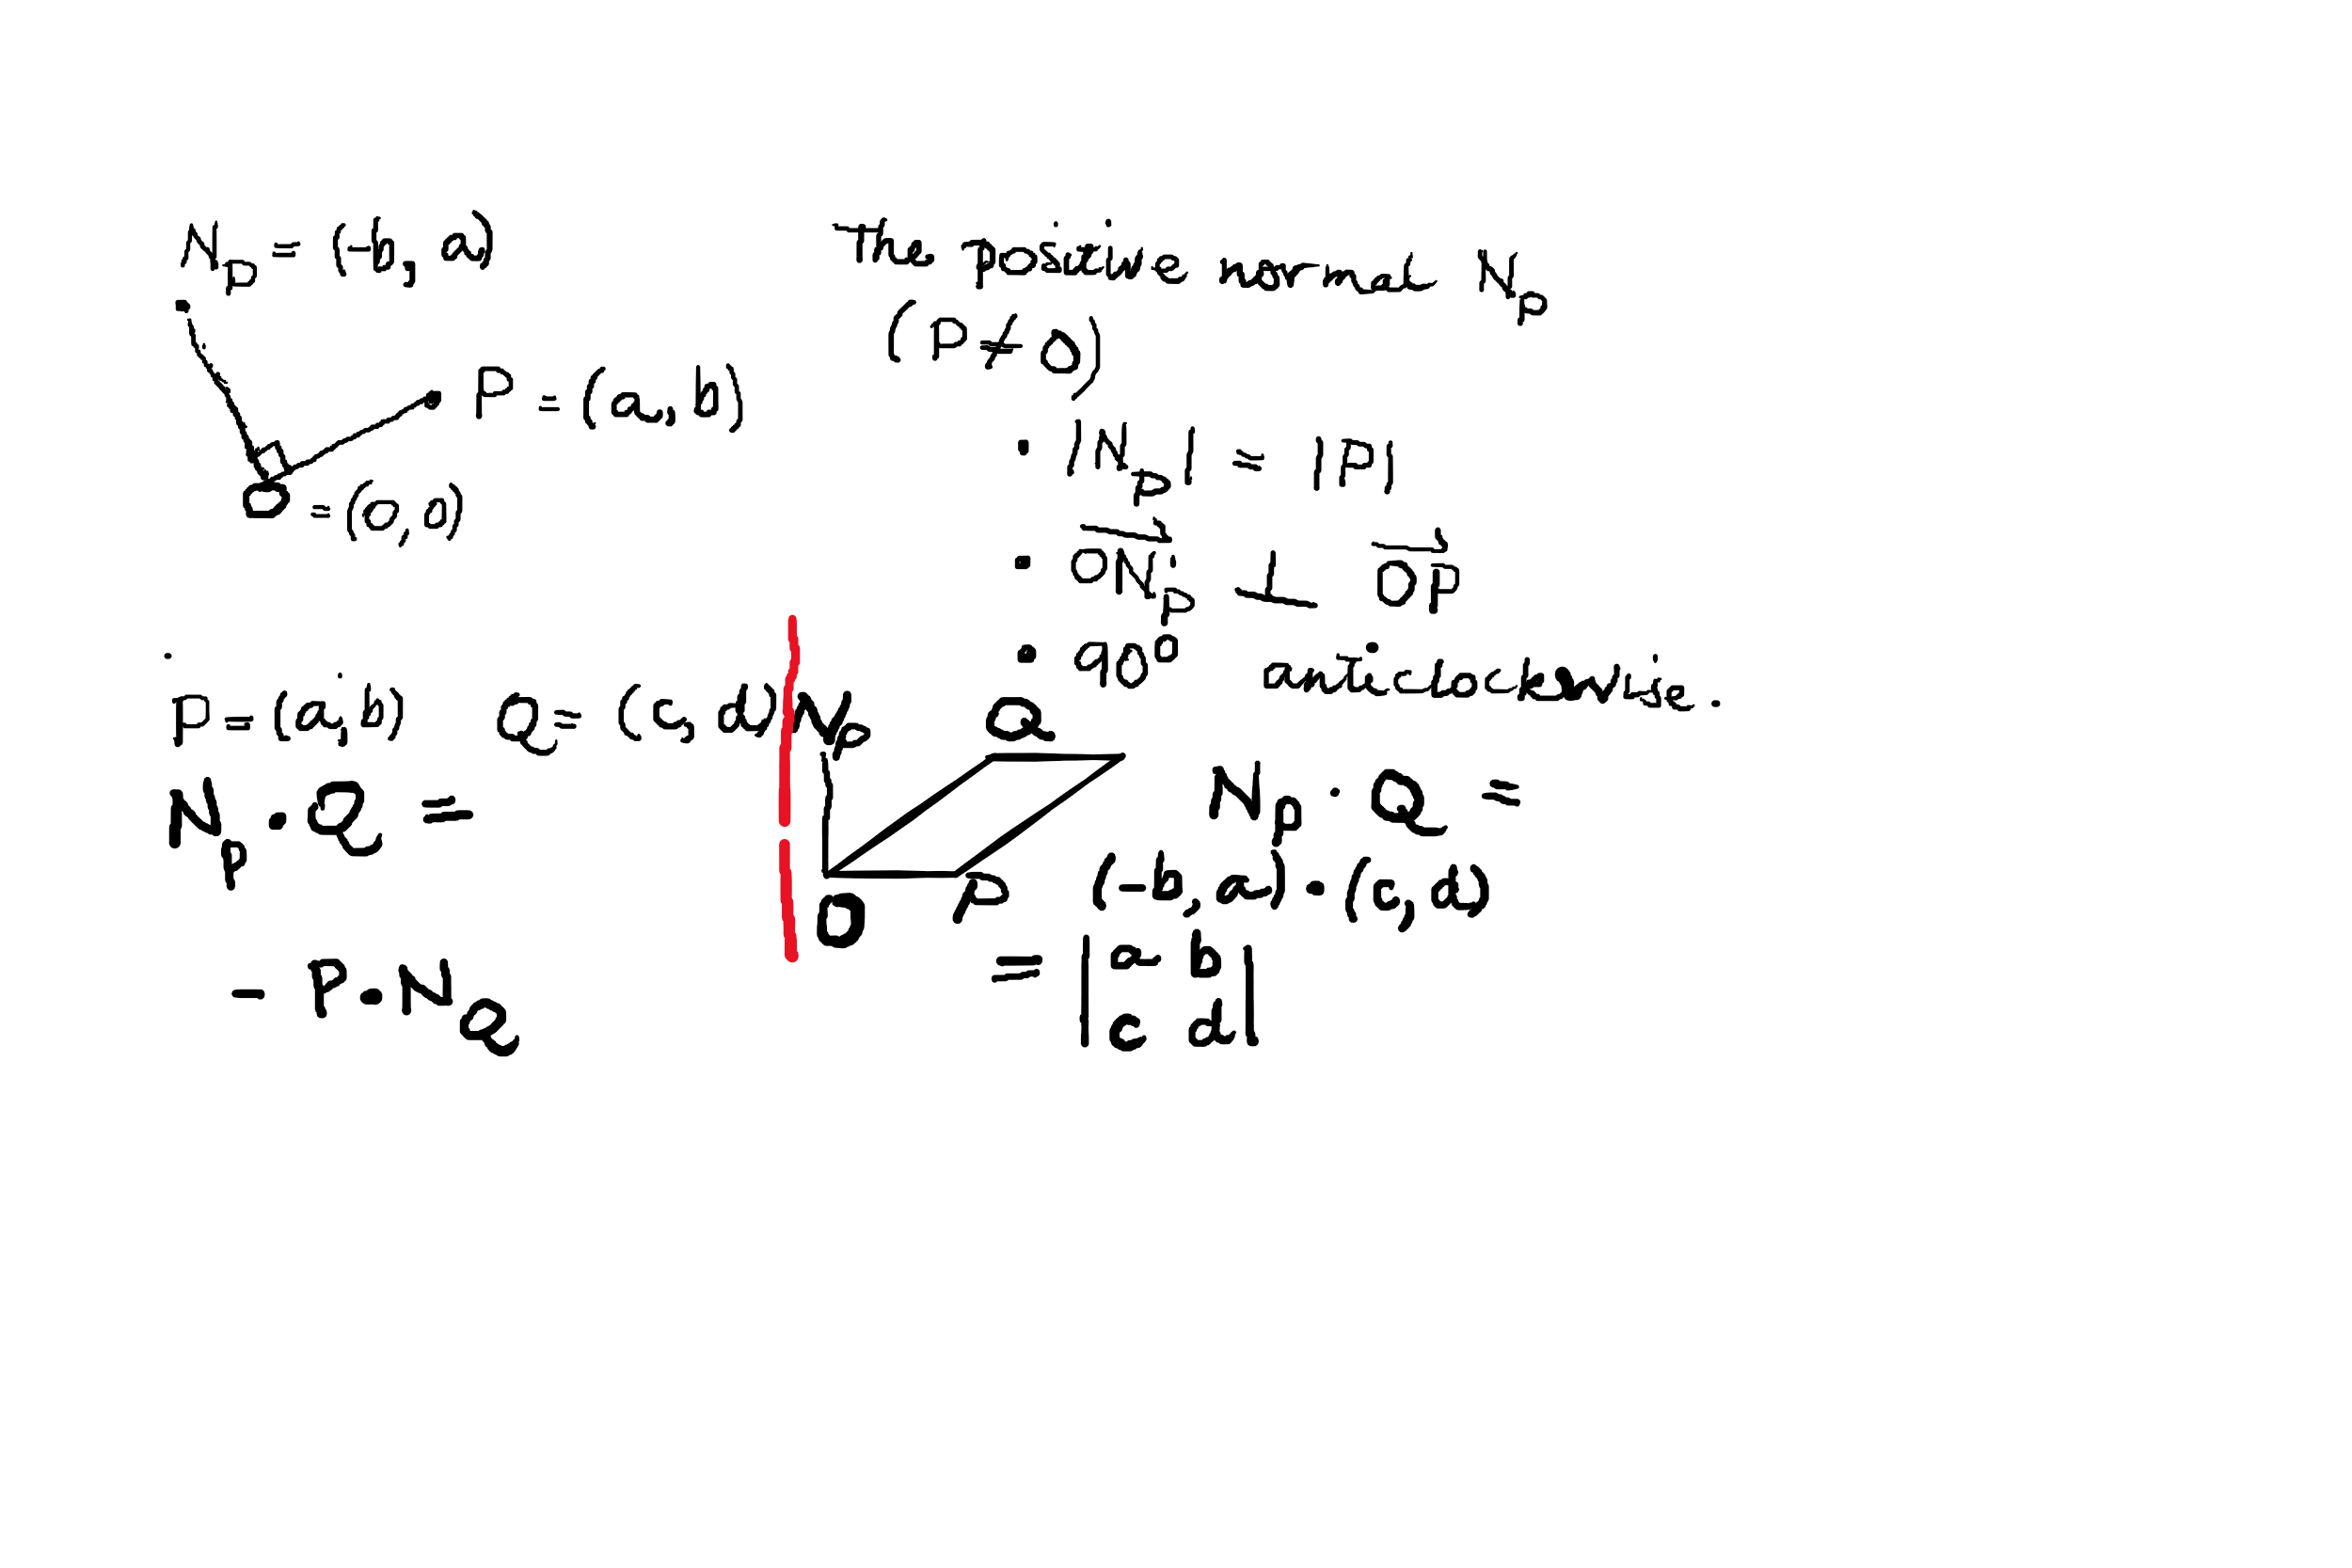 N_P = (-b, a)
P = (a, b)
O = (0, 0)
The positive normal N_P
(P ≠ O)
· |N_P| = |P|
· ON_P ⊥ OP
· 90° anticlockwise.
P = (a, b) Q = (c, d)
N_P · Q =
- P · N_Q
N_P Q
O P
N_P · Q =
(-b, a) · (c, d)
= | a b
c d |